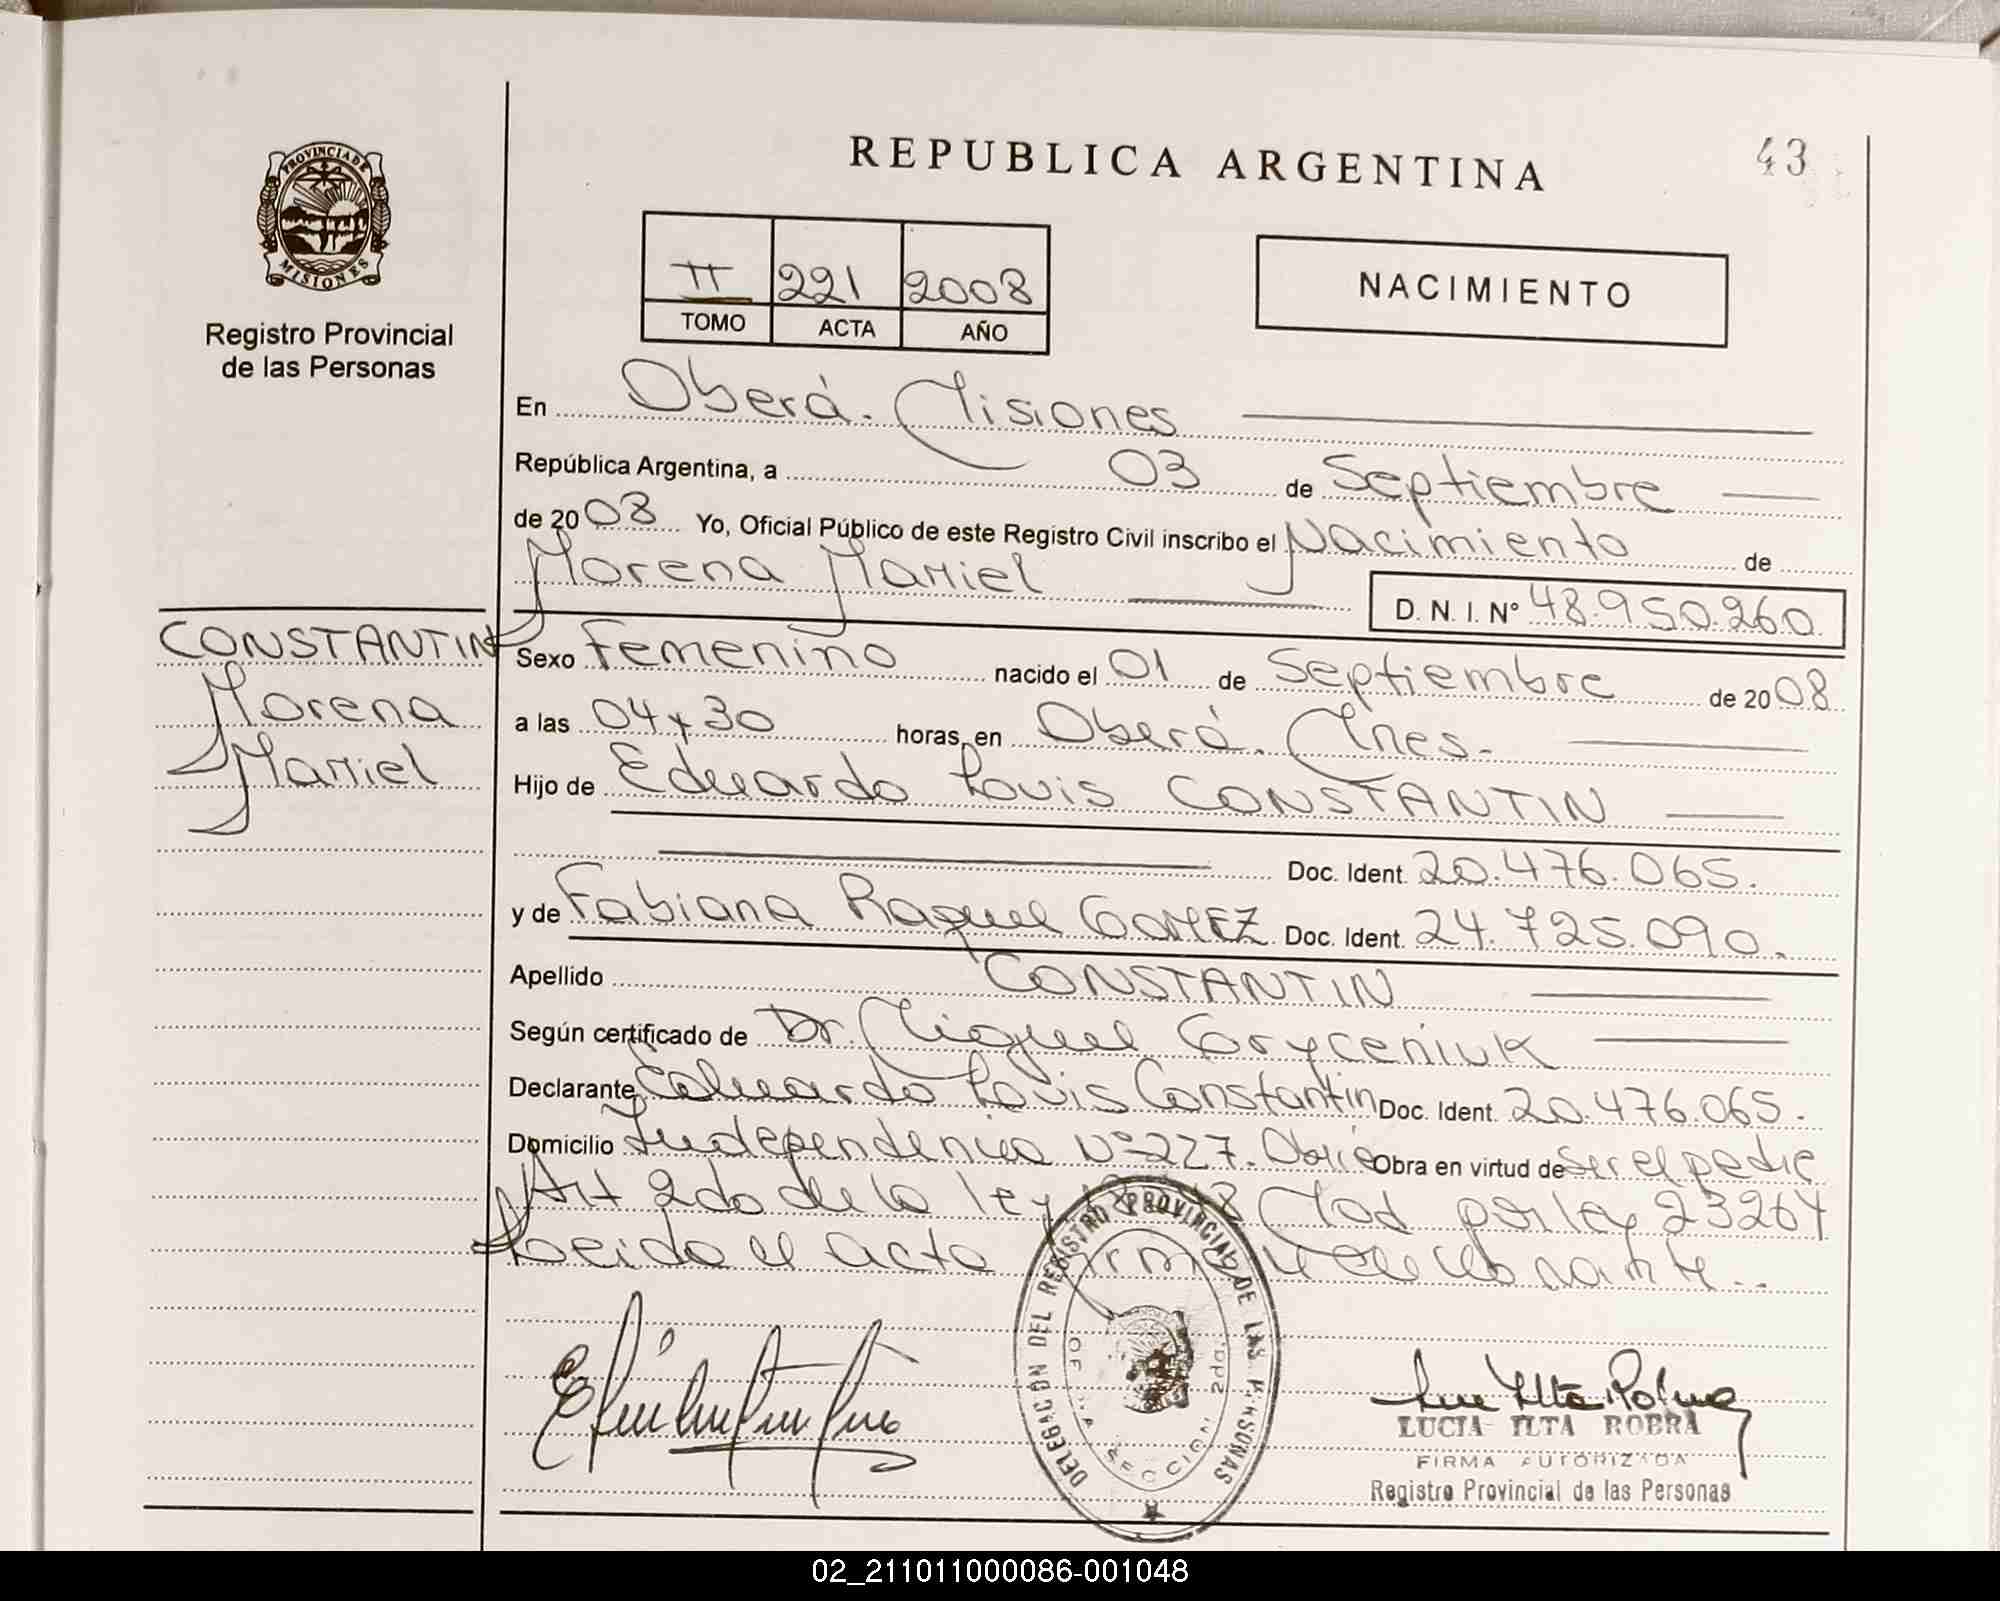 REPUBLICA ARGENTINA
43
PROVINCIA DE
MISIONES
Registro Provincial
de las Personas
II 221 2008
TOMO ACTA AÑO
NACIMIENTO
En Oberá. Misiones
República Argentina, a 03 de Septiembre
de 2008 Yo, Oficial Público de este Registro Civil inscribo el Nacimiento de
Morena Mariel
D. N. I. Nº 48.950.260
CONSTANTIN
Morena
Mariel
Sexo Femenino nacido el 01 de Septiembre de 2008
a las 04 y 30 horas, en Oberá. Mnes.
Hijo de Eduardo Louis CONSTANTIN
Doc. Ident. 20.476.065.
y de Fabiana Raquel GOMEZ Doc. Ident. 24.725.090.
Apellido CONSTANTIN
Según certificado de Dr. Miguel Gryceniuk
Declarante Eduardo Louis Constantin Doc. Ident. 20.476.065.
Domicilio Independencia Nº 227. Obra en virtud de ser el padre
Art 2do de la ley Mod por ley 23264
Leido el acta firma el declarante..
DELEGACION DEL REGISTRO PROVINCIAL DE LAS PERSONAS
SECCION 2da.
LUCIA ILTA ROBRA
FIRMA AUTORIZADA
Registro Provincial de las Personas
02_211011000086-001048